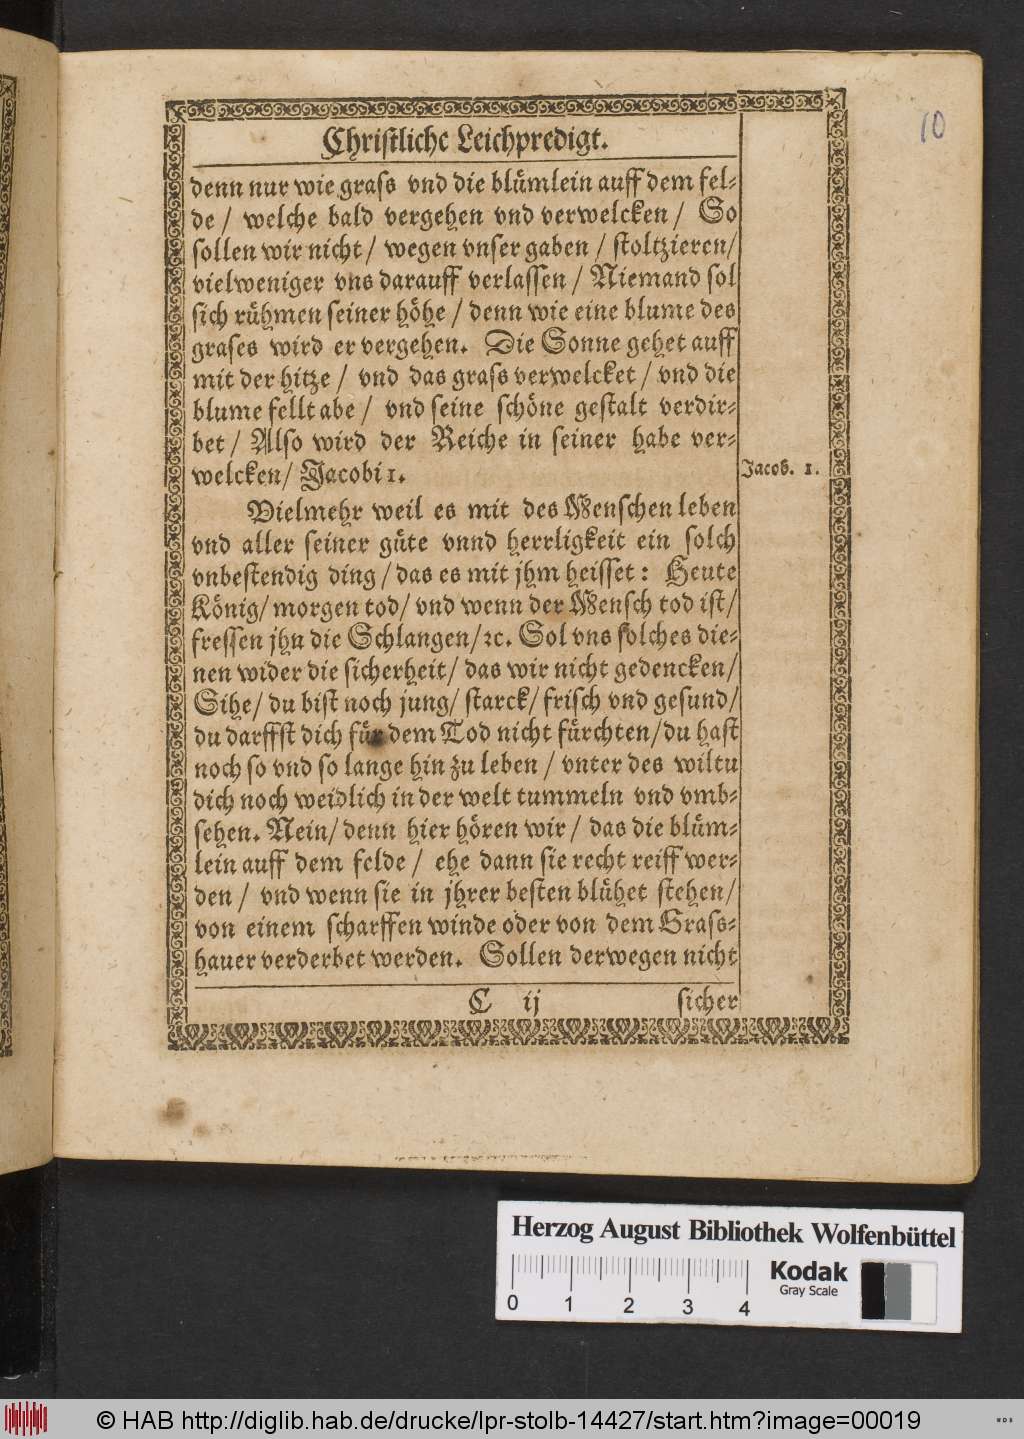 Christliche Leichpredigt.
10
denn nur wie grass vnd die blümlein auff dem fel-
de / welche bald vergehen vnd verwelcken / So
sollen wir nicht / wegen vnser gaben / stoltzieren/
vielweniger vns darauff verlassen / Niemand sol
sich rühmen seiner höhe / denn wie eine blume des
grases wird er vergehen. Die Sonne gehet auff
mit der hitze / vnd das grass verwelcket / vnd die
blume fellt abe / vnd seine schöne gestalt verdir-
bet / Also wird der Reiche in seiner habe ver-
welcken/ Jacobi 1.
Jacob. 1.
Vielmehr weil es mit des Menschen leben
vnd aller seiner güte vnnd herrligkeit ein solch
vnbestendig ding / das es mit jhm heisset: Heute
König/ morgen tod/ vnd wenn der Mensch tod ist/
fressen jhn die Schlangen/ ꝛc. Sol vns solches die-
nen wider die sicherheit/ das wir nicht gedencken/
Sihe/ du bist noch jung/ starck/ frisch vnd gesund/
du darffst dich für dem Tod nicht fürchten/du hast
noch so vnd so lange hin zu leben / vnter des wiltu
dich noch weidlich in der welt tummeln vnd vmb-
sehen. Nein/ denn hier hören wir / das die blüm-
lein auff dem felde / ehe dann sie recht reiff wer-
den / vnd wenn sie in jhrer besten blühet stehen/
von einem scharffen winde oder von dem Grass-
hauer verderbet werden. Sollen derwegen nicht
C ij sicher
Herzog August Bibliothek Wolfenbüttel
Kodak
Gray Scale
0 1 2 3 4
© HAB http://diglib.hab.de/drucke/lpr-stolb-14427/start.htm?image=00019